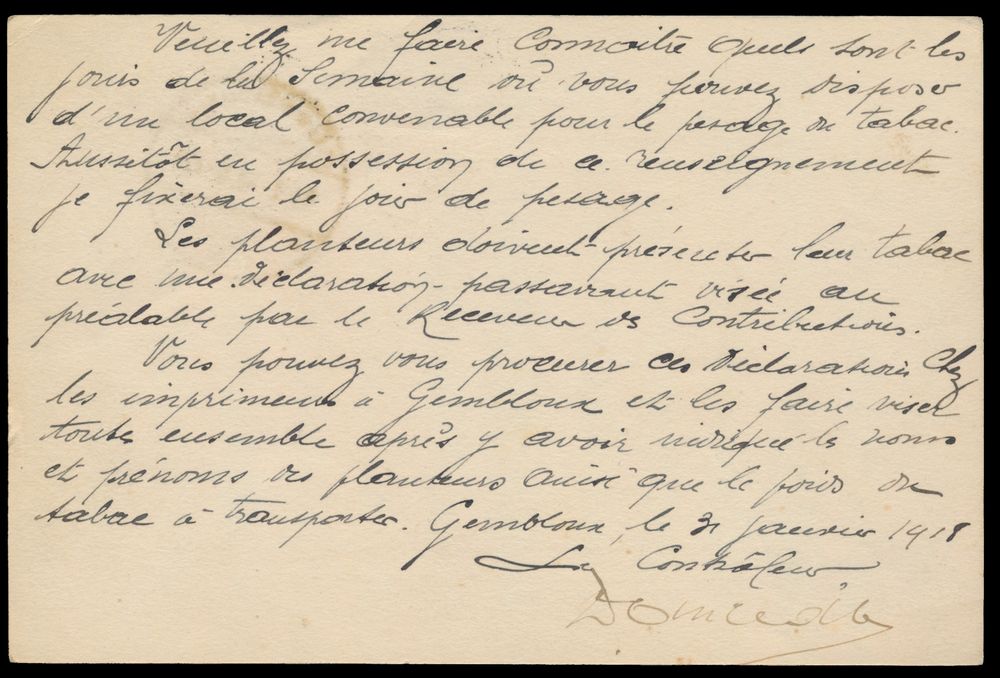 Veuillez me faire connaitre quels sont les
jours de la semaine où vous pouvez disposer
d'un local convenable pour le pesage du tabac.
Aussitôt en possession de ce renseignement
je fixerai le jour de pesage.
Les planteurs doivent présenter leur tabac
avec une Déclaration-passavant visée au
préalable par le Receveur des Contributions.
Vous pouvez vous procurer ces Déclarations chez
les imprimeurs à Gembloux et les faire viser
toutes ensemble après y avoir indiqué les noms
et prénoms des planteurs ainsi que le poids du
tabac à transporter. Gembloux, le 31 janvier 1918
Le Contrôleur